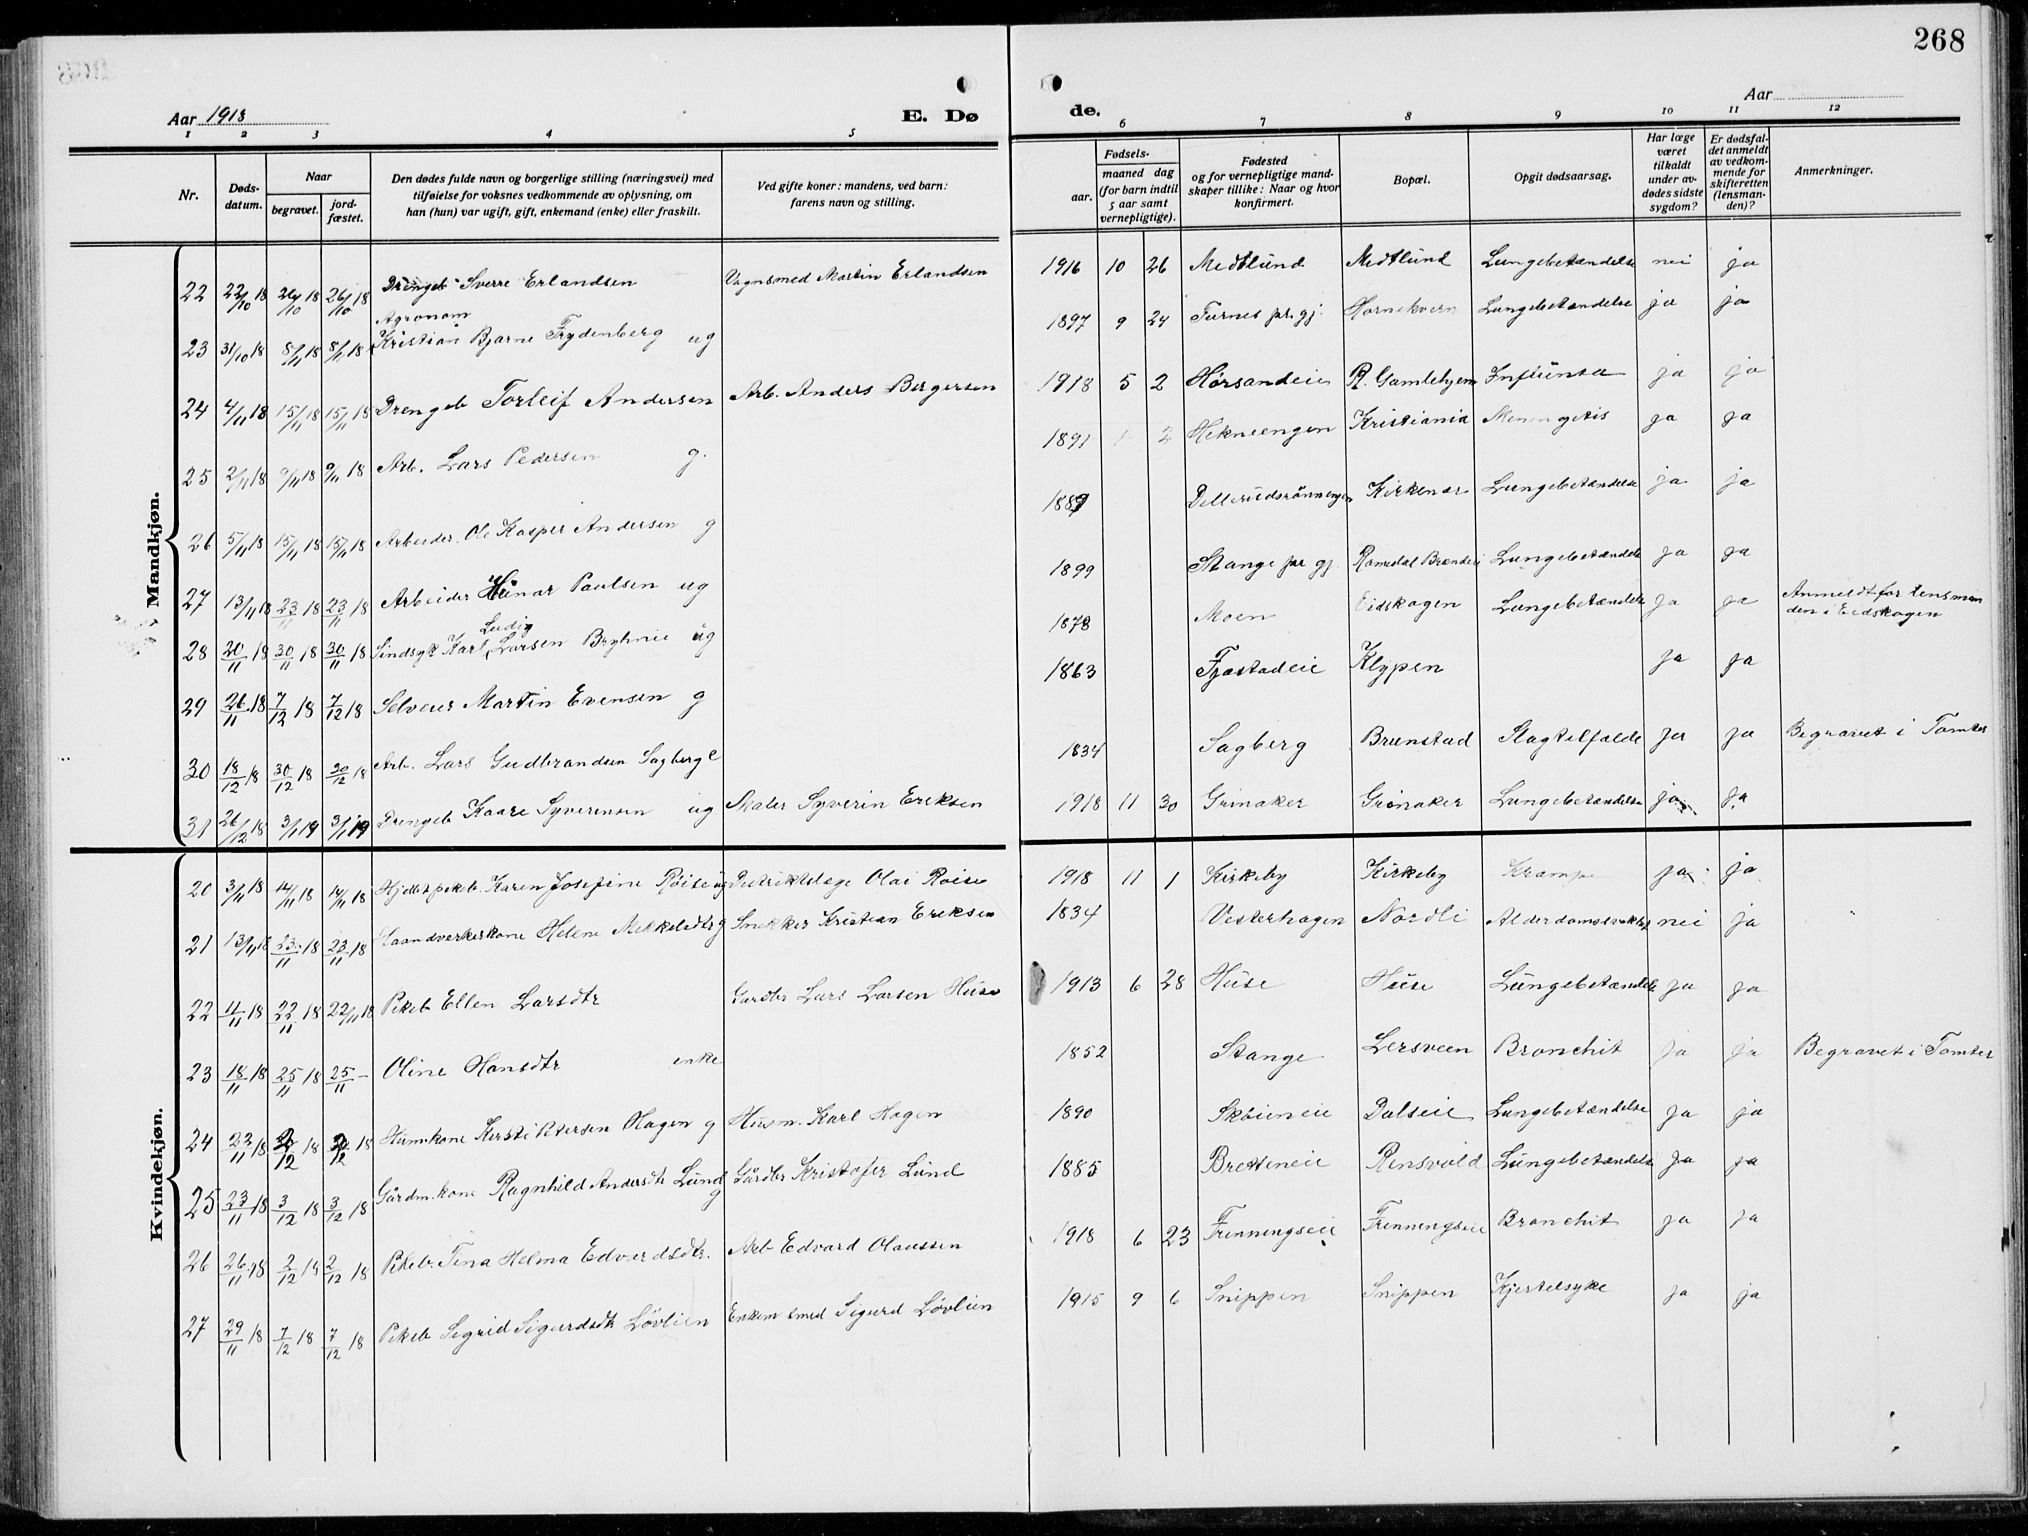 268
Aar 1918
E. Dø
de.
Aar
1 2 3 4 5 6 7 8 9 10 11 12
Nr.
Døds-
datum.
Naar
begravet.
jord-
fæstet.
Den dødes fulde navn og borgerlige stilling (næringsvei) med
tilføielse for voksnes vedkommende av oplysning, om
han (hun) var ugift, gift, enkemand (enke) eller fraskilt.
Ved gifte koner: mandens, ved barn:
farens navn og stilling.
Fødsels-
aar.
maaned dag
(for barn indtil
5 aar samt
vernepligtige).
Fødested
og for vernepligtige mand-
skaper tillike: Naar og hvor
konfirmert.
Bopæl.
Opgit dødsaarsag.
Har læge
været
tilkaldt
under av-
dødes sidste
sygdom?
Er dødsfal-
det anmeldt
av vedkom-
mende for
skifteretten
(lensman-
den)?
Anmerkninger.
Mandkjøn.
22 22/10 18 26/10 18 26/10 18 Drengeb. Sverre Erlandsen Vognsmed Martin Erlandsen 1916 10 26 Medtlund Medtlund Lungebetændelse nei ja
Agronom
23 31/10 18 8/11 18 8/11 18 Kristian Bjarne Frydenberg ug 1897 9 24 Furnes pr. gj. Hornekvern Lungebetændelse ja ja
24 4/11 18 15/11 18 15/11 18 Drengeb Torleif Andersen Arb. Anders Bergersen 1918 5 2 Horsandeie R. Gamlehjem Infuinsa ja ja
25 2/11 18 9/11 18 9/11 18 Arb. Lars Pedersen g. 1891 2 Hekneengen Kristiania Meningetis ja ja
26 5/11 18 15/11 18 15/11 18 Arbeider Ole Kasper Andersen g 1889 Dellerudsrönningen Kirkenær Lungebetændelse ja ja
27 13/11 18 23/11 18 23/11 18 Arbeider Einar Paulsen ug 1899 Stange pr gj. Romedal Brænderi Lungebetændelse ja ja
Ludig
28 20/11 18 30/11 18 30/11 18 Sindsyk Karl Larsen Bryhnie ug 1878 Moen Eidskogen Lungebetændelse ja ja Anmeldt for lensman
den i Eidskogen
29 26/11 18 7/12 18 7/12 18 Selveier Martin Evensen g 1863 Fjæstadeie Klypen ja ja
30 18/12 18 30/12 18 30/12 18 Arb. Lars Gudbrandsen Sagberg e 1834 Sagberg Brunstad Slagtilfælde ja ja Begravet i Tomter
31 26/12 18 3/1 19 3/1 19 Drengeb Kaare Syverinsen ug Maler Syverin Eriksen 1918 11 30 Grinaker Grinaker Lungebetændelse ja ja
Kvindekjøn.
20 3/11 18 14/11 18 14/11 18 Hjdøpt pikeb. Karen Josefine Røise ug Distriktslæge Olai Røise 1918 11 1 Kirkeby Kirkeby Krampe ja ja
21 13/11 18 23/11 18 23/11 18 Haandverkerkone Helene Mikkelsdtr g Snekker Kristian Eriksen 1834 Vesterhagen Nordli Alderdomssvakhet nei ja
22 11/11 18 22/11 18 22/11 18 Pikeb Ellen Larsdtr Gardbr Lars Larsen Huse 1913 6 28 Huse Huse Lungebetændelse ja ja
23 18/11 18 25/11 18 25/11 – Oline Hansdtr enke 1852 Stange Lersveen Bronchit ja ja Begravet i Tomter
24 23/11 18 2/12 18 2/12 18 Husm.kone Kersti Petersen Hagen g Husm. Karl Hagen 1890 Skøieneie Dalseie Lungebetændelse ja ja
25 23/11 18 3/12 18 3/12 18 Gårdm.kone Ragnhild Andersdtr Lund g Gårdbr Kristofer Lund 1885 Bresteneie Rensvold Lungebetændelse ja ja
26 26/11 18 2/12 18 2/12 18 Pikeb. Tina Helma Edvardsdtr. Arb Edvard Olaussen 1918 6 23 Frenningseie Frenningseie Bronchit ja ja
27 29/11 18 7/12 18 7/12 18 Pikeb Sigrid Sigurdsdtr Løvlien Enkem smed Sigurd Løvlien 1915 9 6 Snippen Snippen Kjertelsyke ja ja